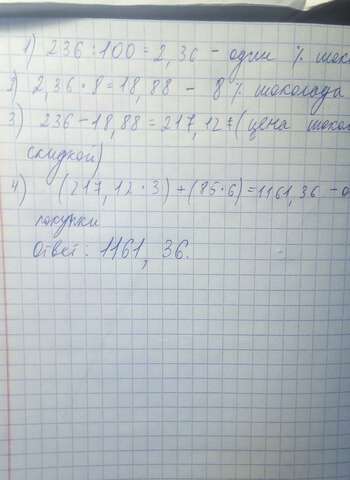 1) 236 : 100 = 2,36 - один % шок
2) 2,36 · 8 = 18,88 - 8 % шоколада
3) 236 - 18,88 = 217,12 (цена шокол
скидкой)
4) (217,12 · 3) + (85 · 6) = 1161,36 - о
покупки
Ответ: 1161, 36.